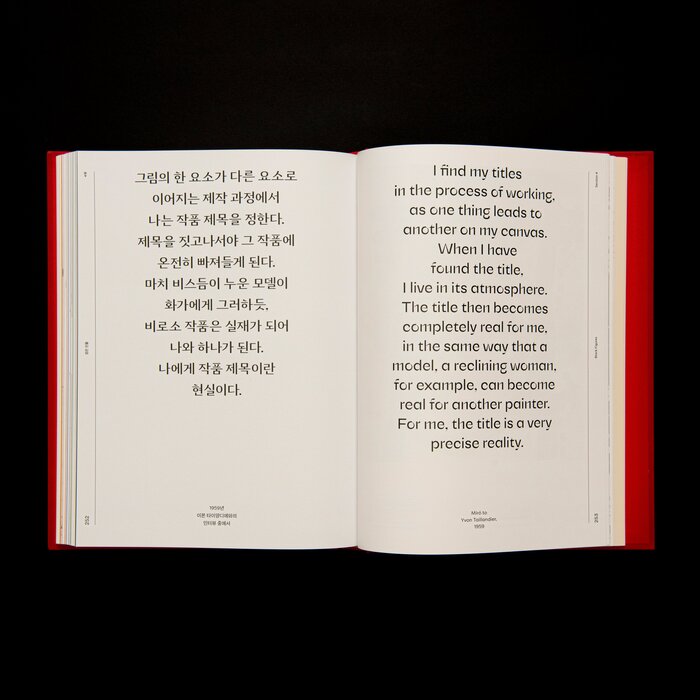 그림의 한 요소가 다른 요소로
이어지는 제작 과정에서
나는 작품 제목을 정한다.
제목을 짓고나서야 그 작품에
온전히 빠져들게 된다.
마치 비스듬이 누운 모델이
화가에게 그러하듯,
비로소 작품은 실재가 되어
나와 하나가 된다.
나에게 작품 제목이란
현실이다.
1959년
이본 타이양디에와의
인터뷰 중에서
252
I find my titles
in the process of working,
as one thing leads to
another on my canvas.
When I have
found the title,
I live in its atmosphere.
The title then becomes
completely real for me,
in the same way that a
model, a reclining woman,
for example, can become
real for another painter.
For me, the title is a very
precise reality.
Miró to
Yvon Taillandier,
1959
Section 4
Black Figures
253